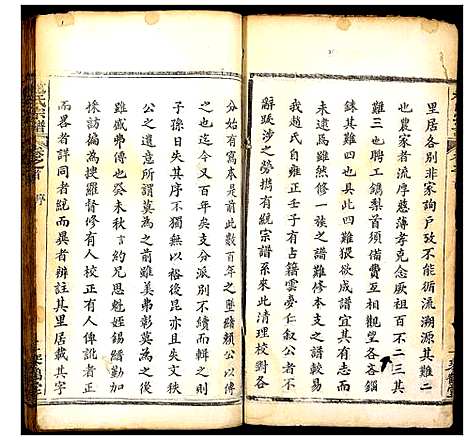 里居各別非家詢戶攷不能流溯源其
也農家者流厚慈薄孝克念厥祖百不二三其
難三也聘工鐫梨首須備費互相觀望各各錙
銖其難四也具此四難猶欲成譜宜其有志而
未遠為嘆之譜難修本支之譜易修耳
我趙氏自雍正壬子有占籍雲夢仁叙公者不
辭跋涉之勞携有統宗譜系來此清理校對各
分始有寫本是前此數百年之墜緒賴公以傳
之也迄今又百年矣支分派別不續而輯之則
子孫日失其序不無以裕後昆亦且失文秧
公之遺意所謂莫為之前雖美弗彰莫為之後
雖盛弗傳也癸未秋言約兄思魁姪錫縉勤加
採訪編為捜羅督修有人校正有人俾訛者正
而畧者詳同者統而異者辨註其里居載其字
氏宗譜
卷首
序